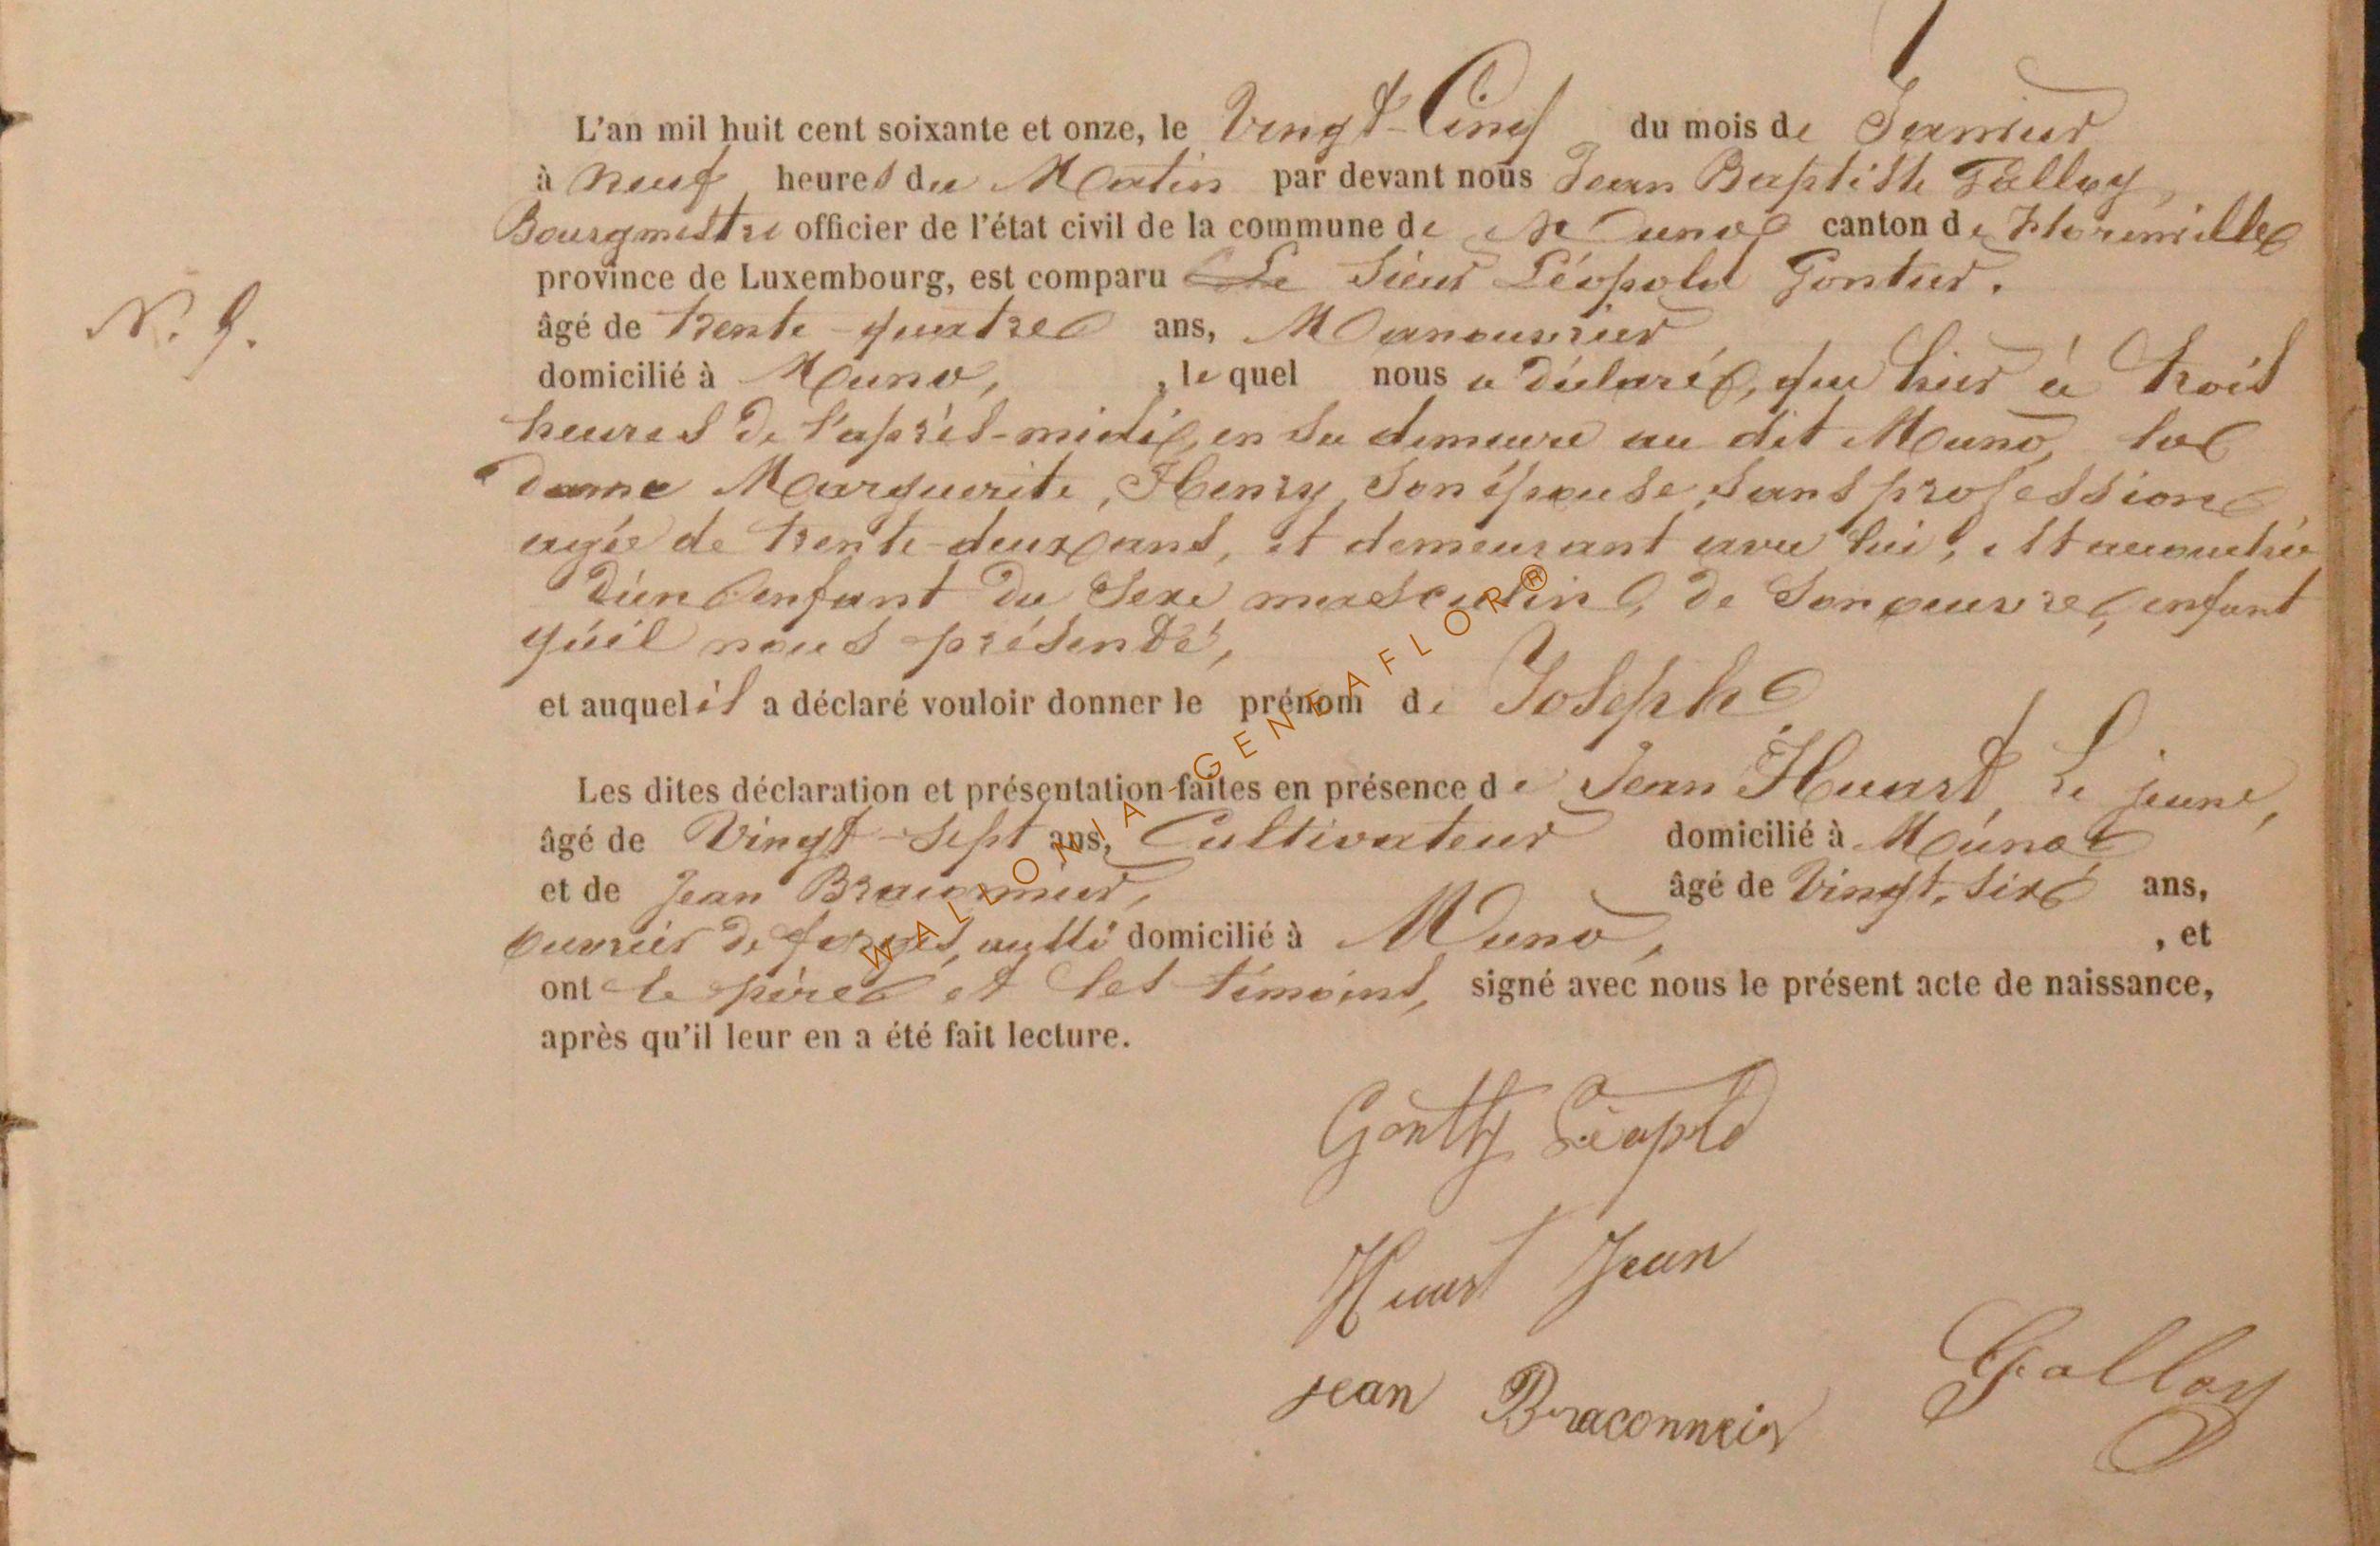 L'an mil huit cent soixante et onze, le Vingt-Cinq du mois de Janvier
à neuf heures du Matin par devant nous Jean Baptiste Galloy,
Bourgmestre officier de l'état civil de la commune de Muno canton de Florenville
province de Luxembourg, est comparu Le Sieur Léopold Gontier.
N. 9.
âgé de trente-quatre ans, Manouvrier
domicilié à Muno, , le quel nous a déclaré, que hier à trois
heures de l'après-midi, en sa demeure au dit Muno, la
dame Marguerite, Henry, son épouse, sans profession
agée de trente-deux ans, et demeurant avec lui, est accouchée
d'un enfant du Sexe masculin, de Son œuvre, enfant
qu'il nous présenté,
et auquel il a déclaré vouloir donner le prénom de Joseph
Les dites déclaration et présentation faites en présence de Jean Huart, le jeune,
âgé de Vingt-sept ans, Cultivateur domicilié à Muno
et de Jean Braconnier, âgé de Vingt-six ans,
ouvrier de forges, aussi domicilié à Muno, , et
ont le père et les témoins, signé avec nous le présent acte de naissance,
après qu'il leur en a été fait lecture.
Léopold
Huart Jean
jean Braconneir
Galloy
WALLONIA - GENEAFLOR®